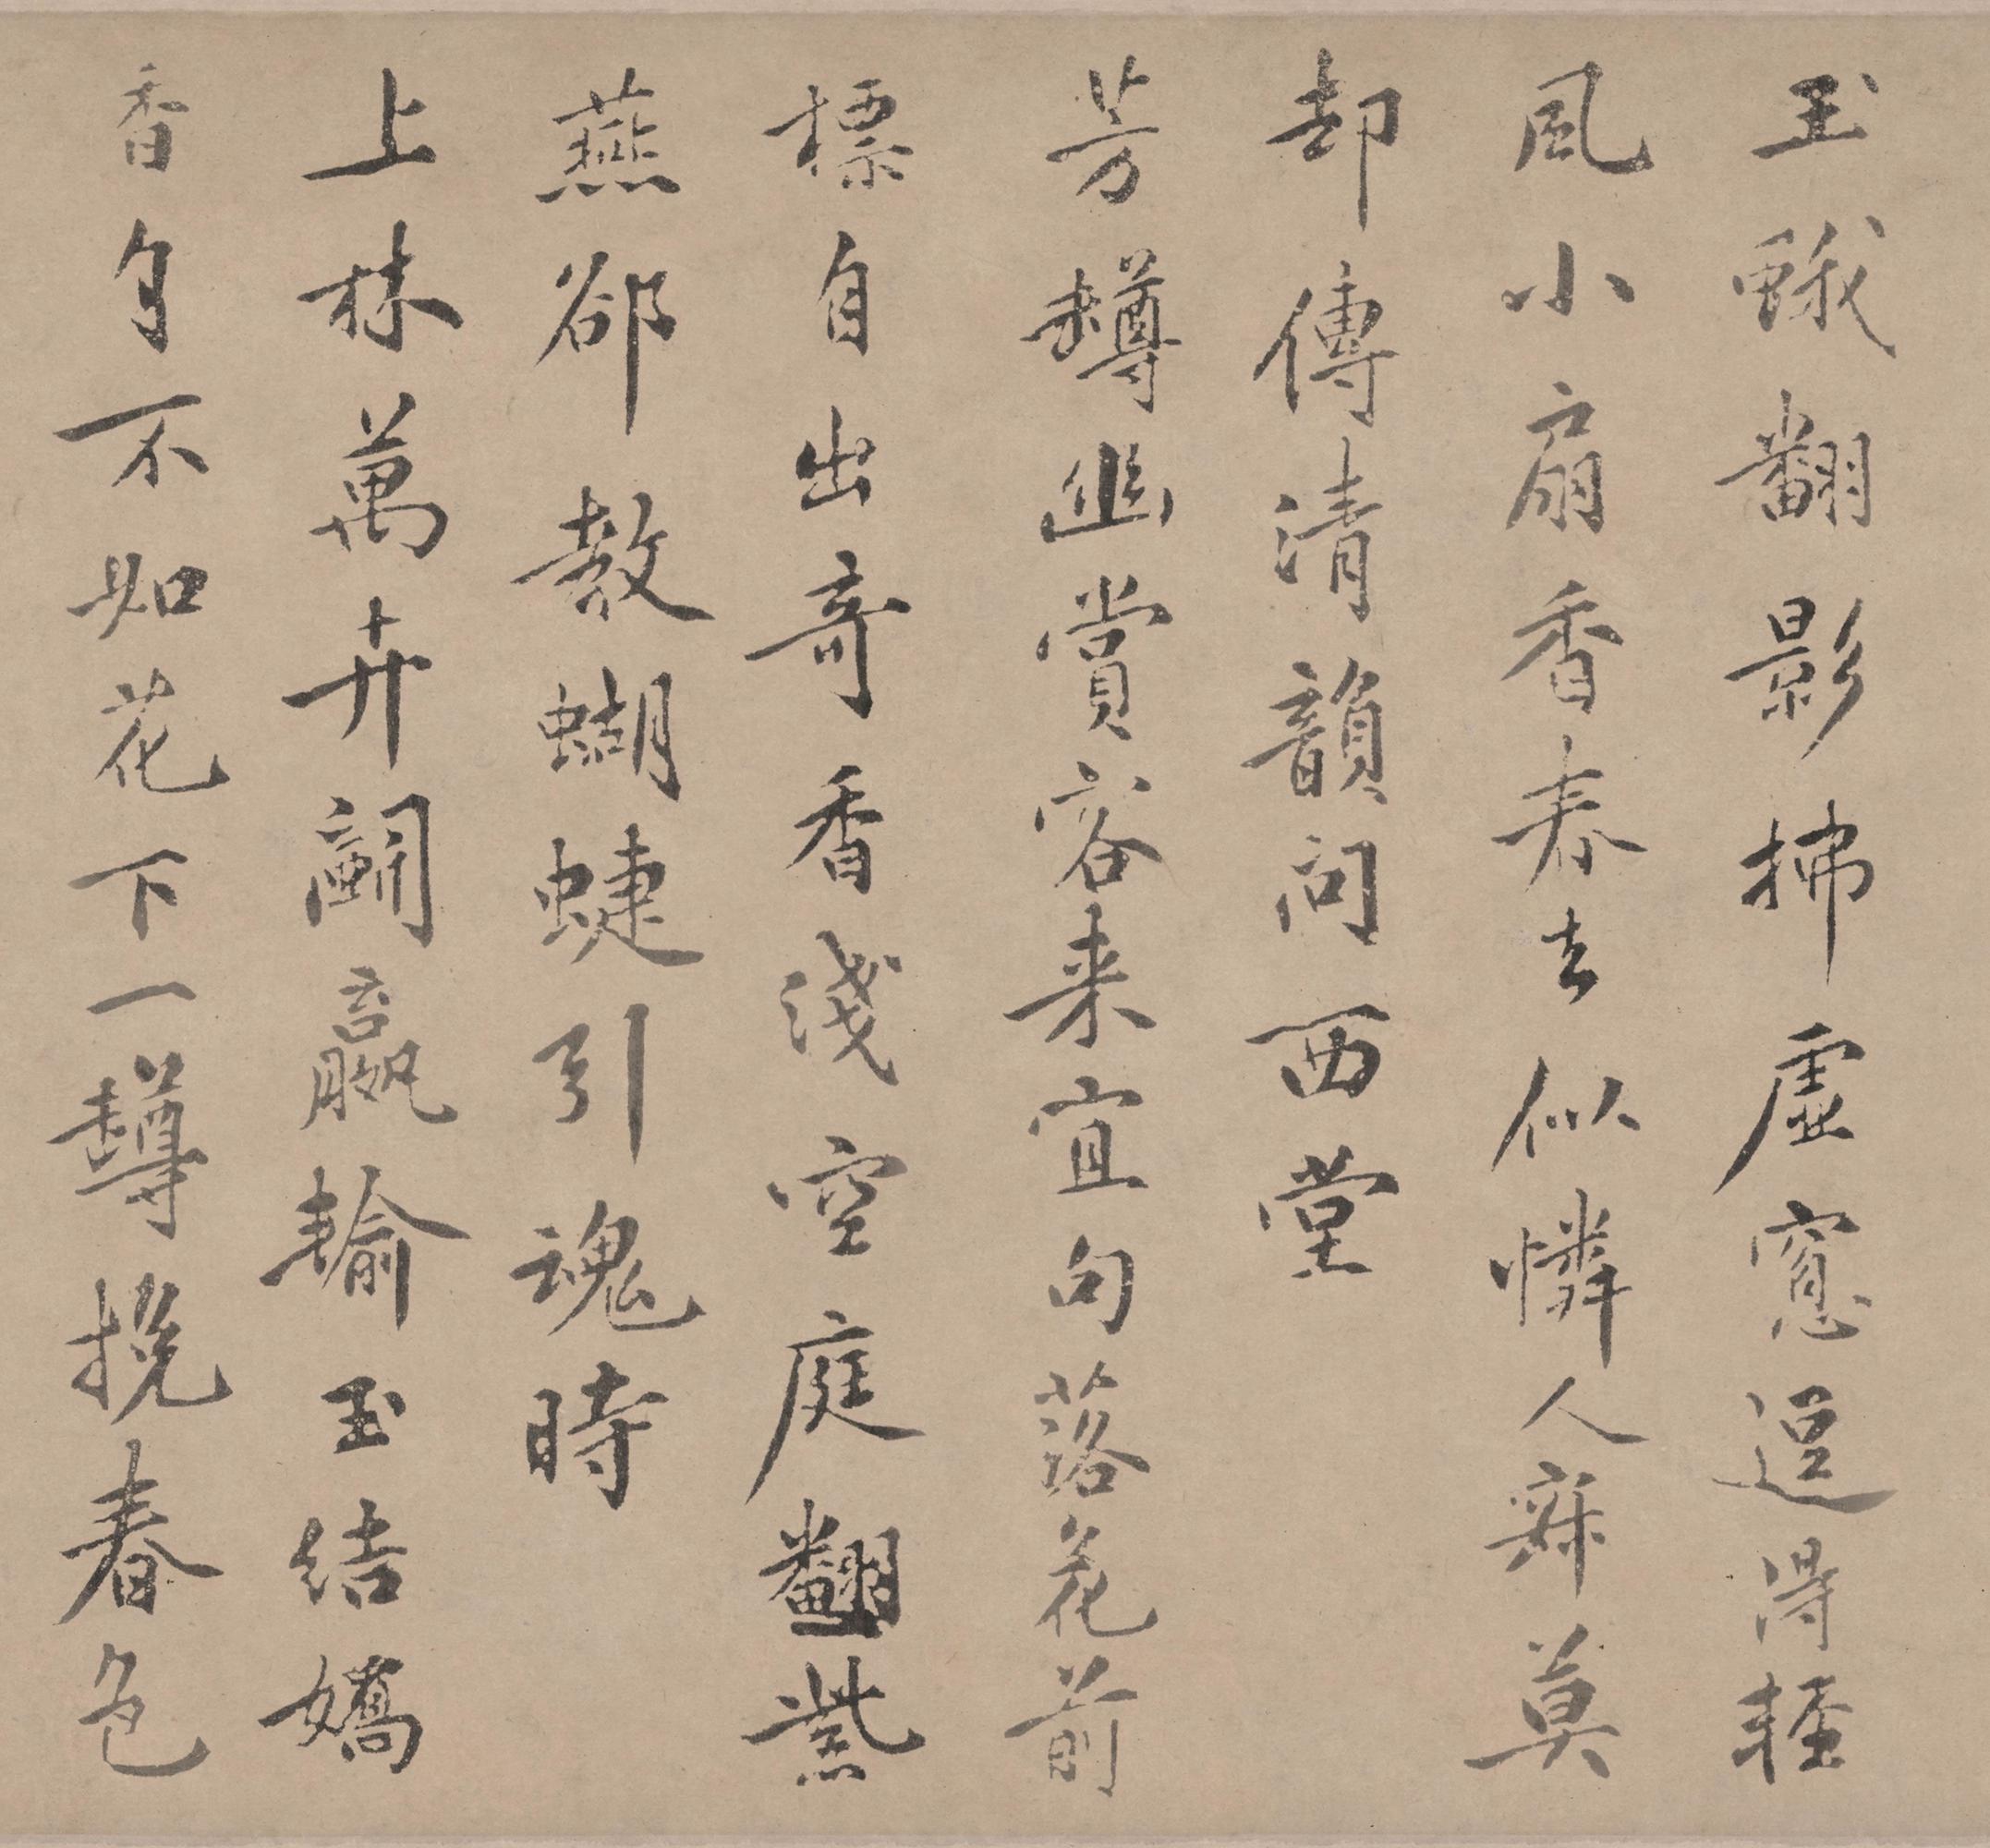 玉蛾翻影拂虛窻逗得輕
風小扇香春去似憐人寂莫
却傳清韻向西堂
芳罇幽賞客来宜句落花前
標自出奇香淺空庭翻紫
燕郤教蝴蜨引魂時
上林萬卉鬭贏輸玉結嬌
香自不如花下一罇挽春色